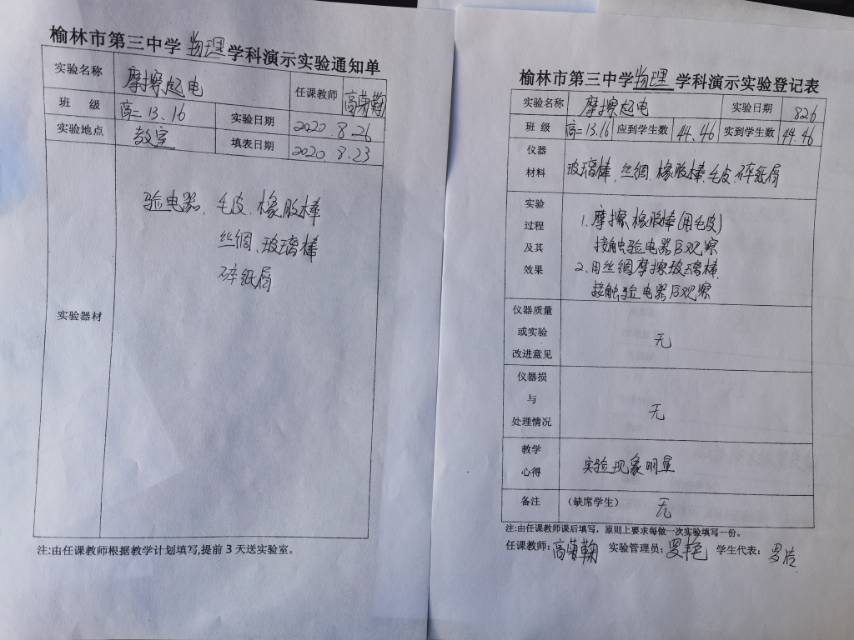 榆林市第三中学 物理 学科演示实验通知单
实验名称 摩擦起电 任课教师
班 级 高二13.16 实验日期 2020 8.26
实验地点 教室 填表日期 2020 8.23
实验器材
验电器、毛皮、橡胶棒
丝绸、玻璃棒
碎纸屑
注:由任课教师根据教学计划填写,提前3天送实验室。
榆林市第三中学 物理 学科演示实验登记表
实验名称 摩擦起电 实验日期 826
班 级 高二13.16 应到学生数 44、46 实到学生数 44.46
仪器
材料
玻璃棒、丝绸、橡胶棒、毛皮、碎纸屑
实验
过程
及其
效果
1.摩擦橡胶棒(用毛皮)
接触验电器后观察
2.用丝绸摩擦玻璃棒
接触验电器后观察
仪器质量
或实验
改进意见
无
仪器损
与
处理情况
无
教学
心得
实验现象明显
备注 (缺席学生) 无
注:由任课教师课后填写,原则上要求每做一次实验填写一份。
任课教师: 实验管理员: 学生代表: